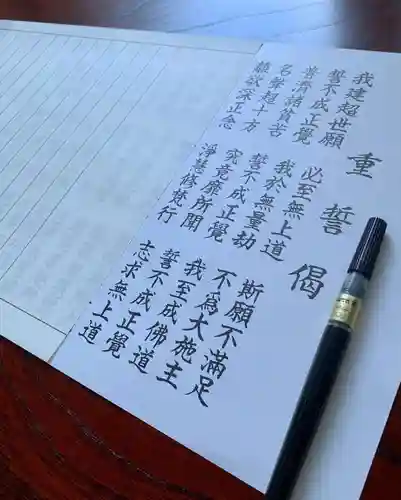 重誓偈
我建超世願 必至無上道 斯願不滿足
誓不成正覺 我於無量劫 不為大施主
普濟諸貧苦 誓不成正覺 我至成佛道
名聲超十方 究竟靡所聞 誓不成正覺
離欲深正念 淨慧修梵行 志求無上道